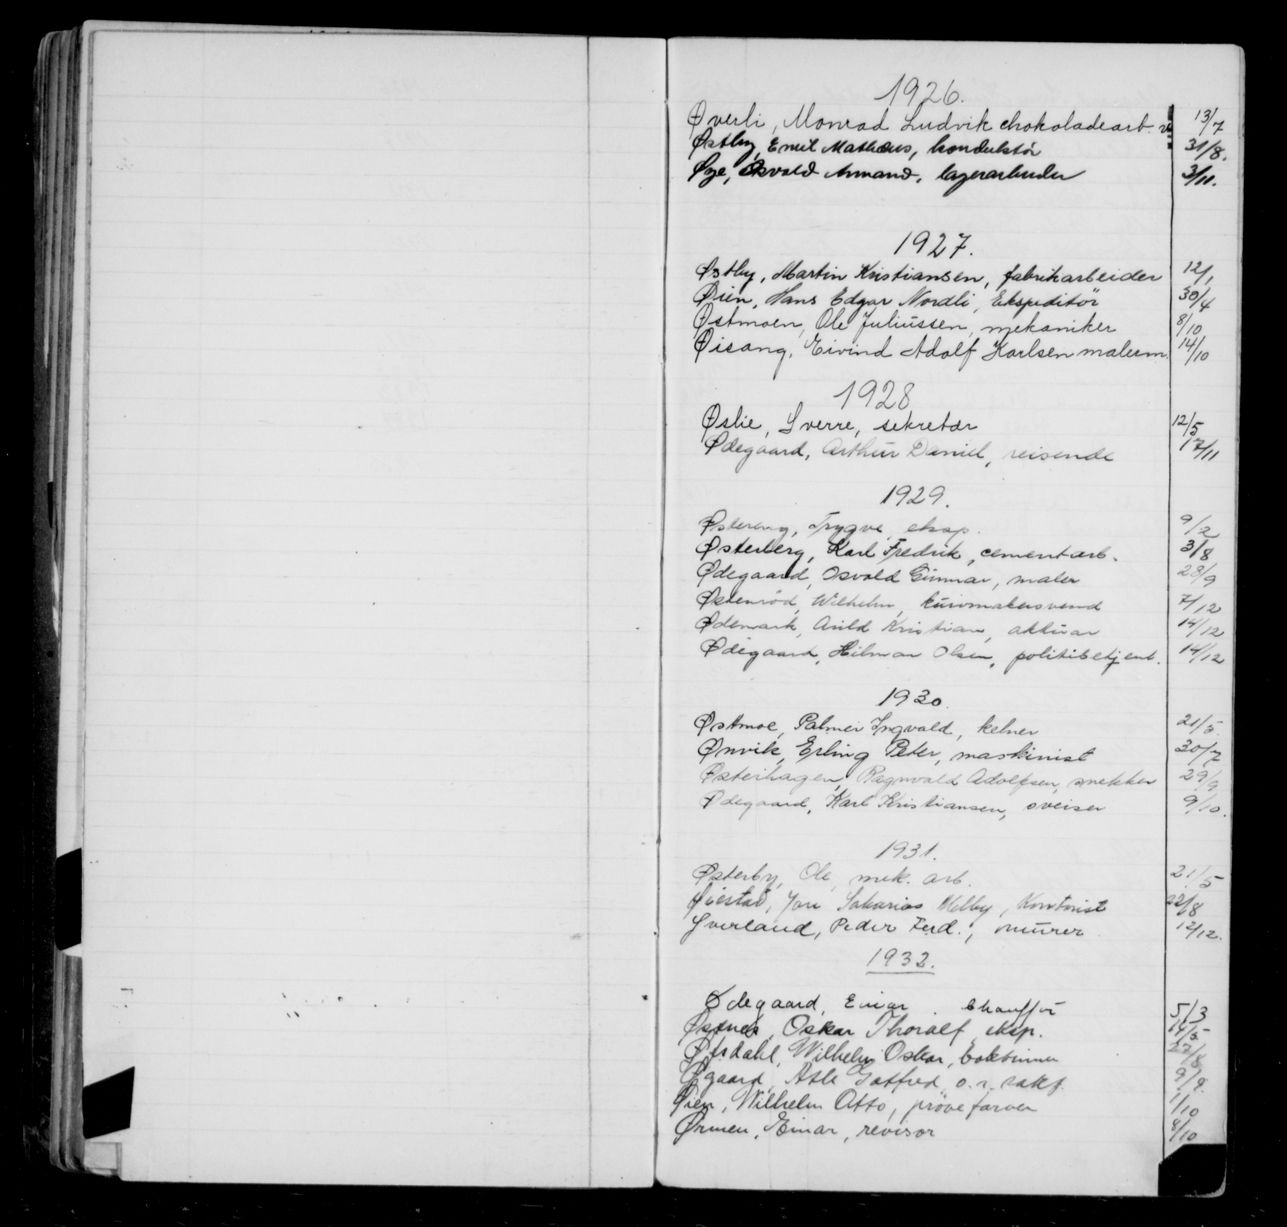 1926.
Øverli, Monrad Ludvik chokoladearb. 13/7
Østby, Emil Mathæus, konduktør 31/8.
Øye, Osvald Armand, lagerarbeider 3/11.
1927.
Østby, Martin Kristiansen, fabrikarbeider 12/1
Øien, Hans Edgar Nordli, Ekspeditör 30/4
Østmoen, Ole Juliussen, mekaniker 8/10
Øisang, Eivind Adolf Karlsen malerm. 14/10
1928
Øslie, Sverre, sekretær 12/5
Ødegaard, Arthur Daniel, reisende 17/11
1929.
Østerberg, Trygve, eksp. 9/2
Østerberg, Karl Fredrik, cementarb. 3/8
Ødegaard, Osvald Gunnar, maler 28/9
Østenröd, Wilhelm, kurvmakersvend 7/12
Ødemark, Arild Kristian, aktuar 14/12
Ødegaard, Hilmar Olsen, politibetjent. 14/12
1930.
Østmoe, Palmer Ingvald, kelner 21/5.
Ønvik, Erling Peter, maskinist 30/7
Østerhagen, Ragnvald Adolfsen, snekker 29/9
Ødegaard, Karl Kristiansen, sveiser 9/10.
1931.
Østerby, Ole, mek. arb. 21/5
Øiestad, Sakarias Melby, Kontorist 22/8
Øverland, Peder Ferd., murer 12/12.
1932.
Ødegaard, Einar. Chauffør 5/3
Østnes, Oskar Thoralf, eksp. 14/5
Øfsdahl, Wilhelm Oskar, bokbinner
Øgaard, Atle Gotfred, o.r. sakf. 9/9.
Øien, Wilhelm Otto, prövefarver 1/10
Ørmen, Einar, revisor 8/10